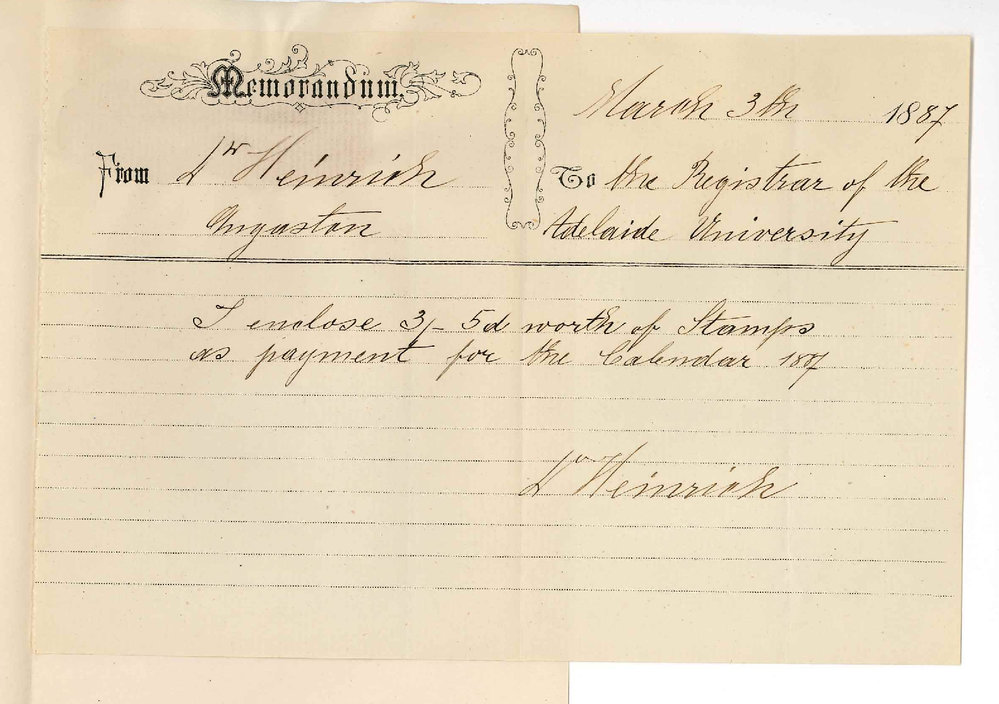 Memorandum.
March 3th 1887
From Dr Heinrich
Angaston
To the Registrar of the
Adelaide University
I enclose 3/- 5d worth of Stamps
as payment for the Calendar 187
Dr Heinrich